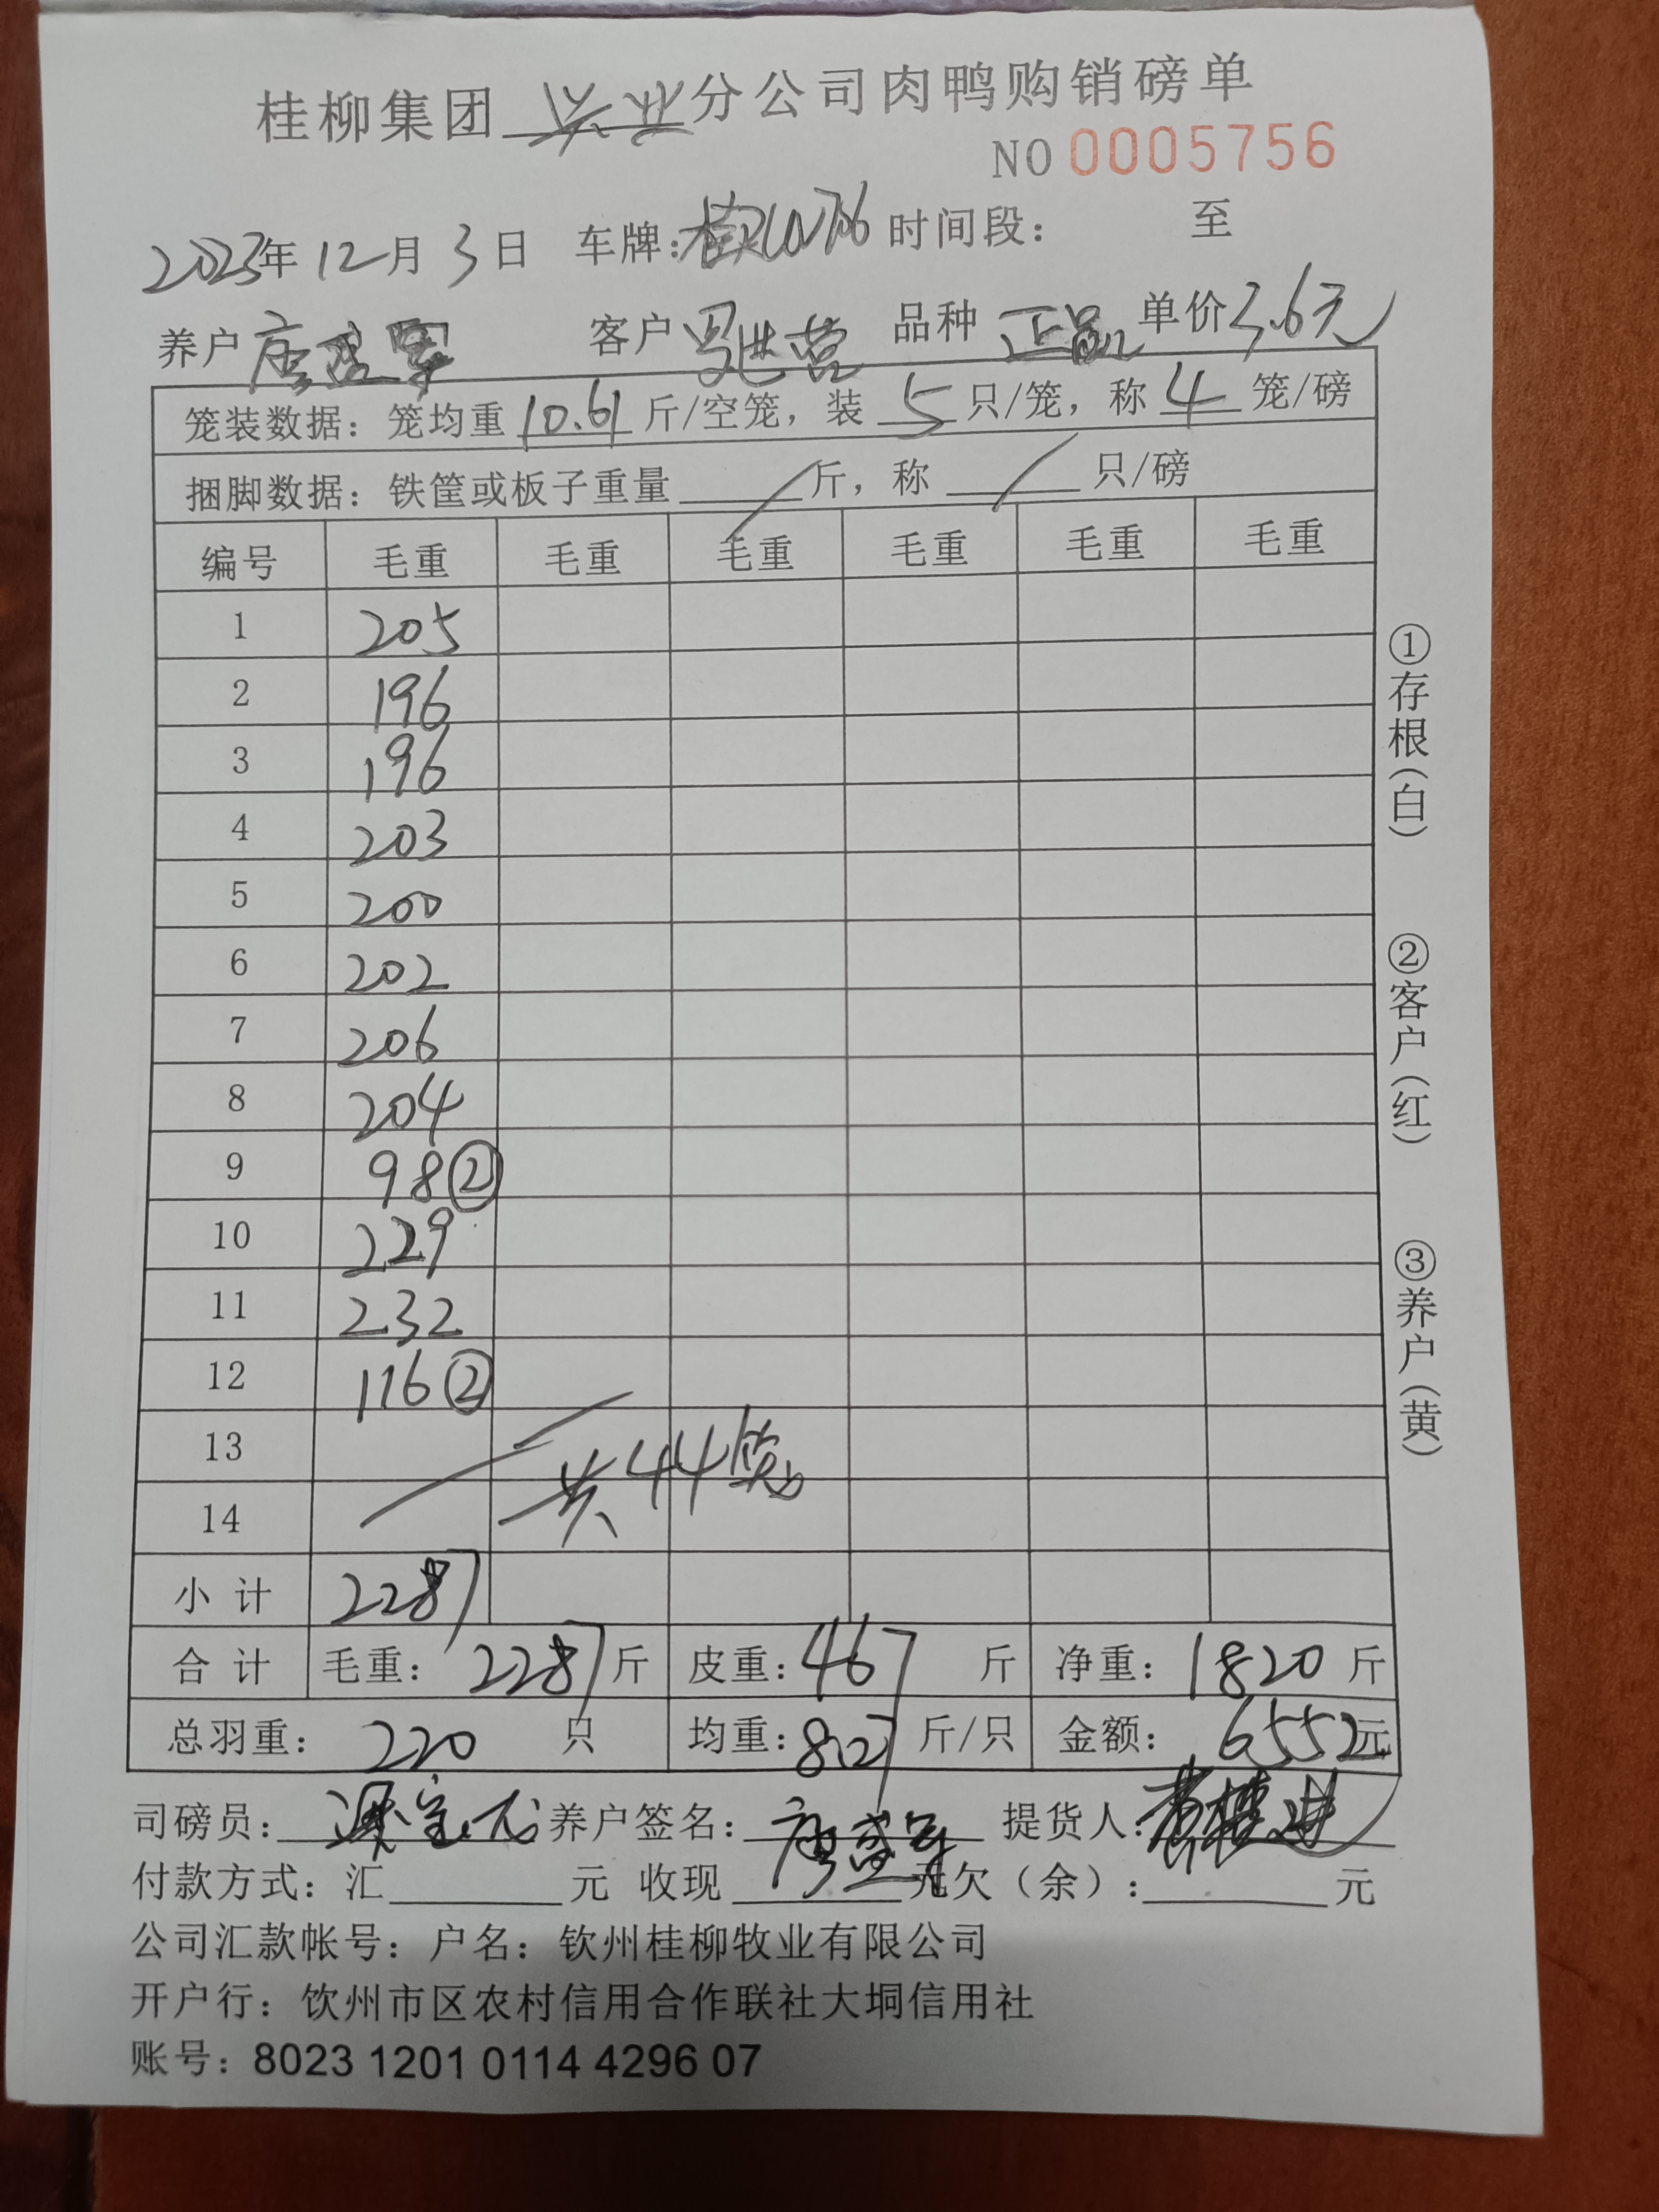 桂柳集团 兴业 分公司肉鸭购销磅单
NO 0005756
2023年 12月 3日 车牌: 时间段: 至
养户 廖盛军 客户 品种 单价 3.6元
笼装数据: 笼均重 10.61 斤/空笼, 装 5 只/笼, 称 4 笼/磅
捆脚数据: 铁筐或板子重量 斤, 称 只/磅
编号 毛重 毛重 毛重 毛重 毛重 毛重
1 205
2 196
3 196
4 203
5 200
6 202
7 206
8 204
9 98 ②
10 229
11 232
12 116 ②
13
共44笼
14
小计 2287
合计 毛重: 2287 斤 皮重: 467 斤 净重: 1820 斤
总羽重: 220 只 均重: 斤/只 金额: 6552元
司磅员: 养户签名: 廖盛军 提货人:
付款方式: 汇 元 收现 元 欠(余): 元
公司汇款帐号: 户名: 钦州桂柳牧业有限公司
开户行: 钦州市区农村信用合作联社大垌信用社
账号: 8023 1201 0114 4296 07
①存根(白)
②客户(红)
③养户(黄)